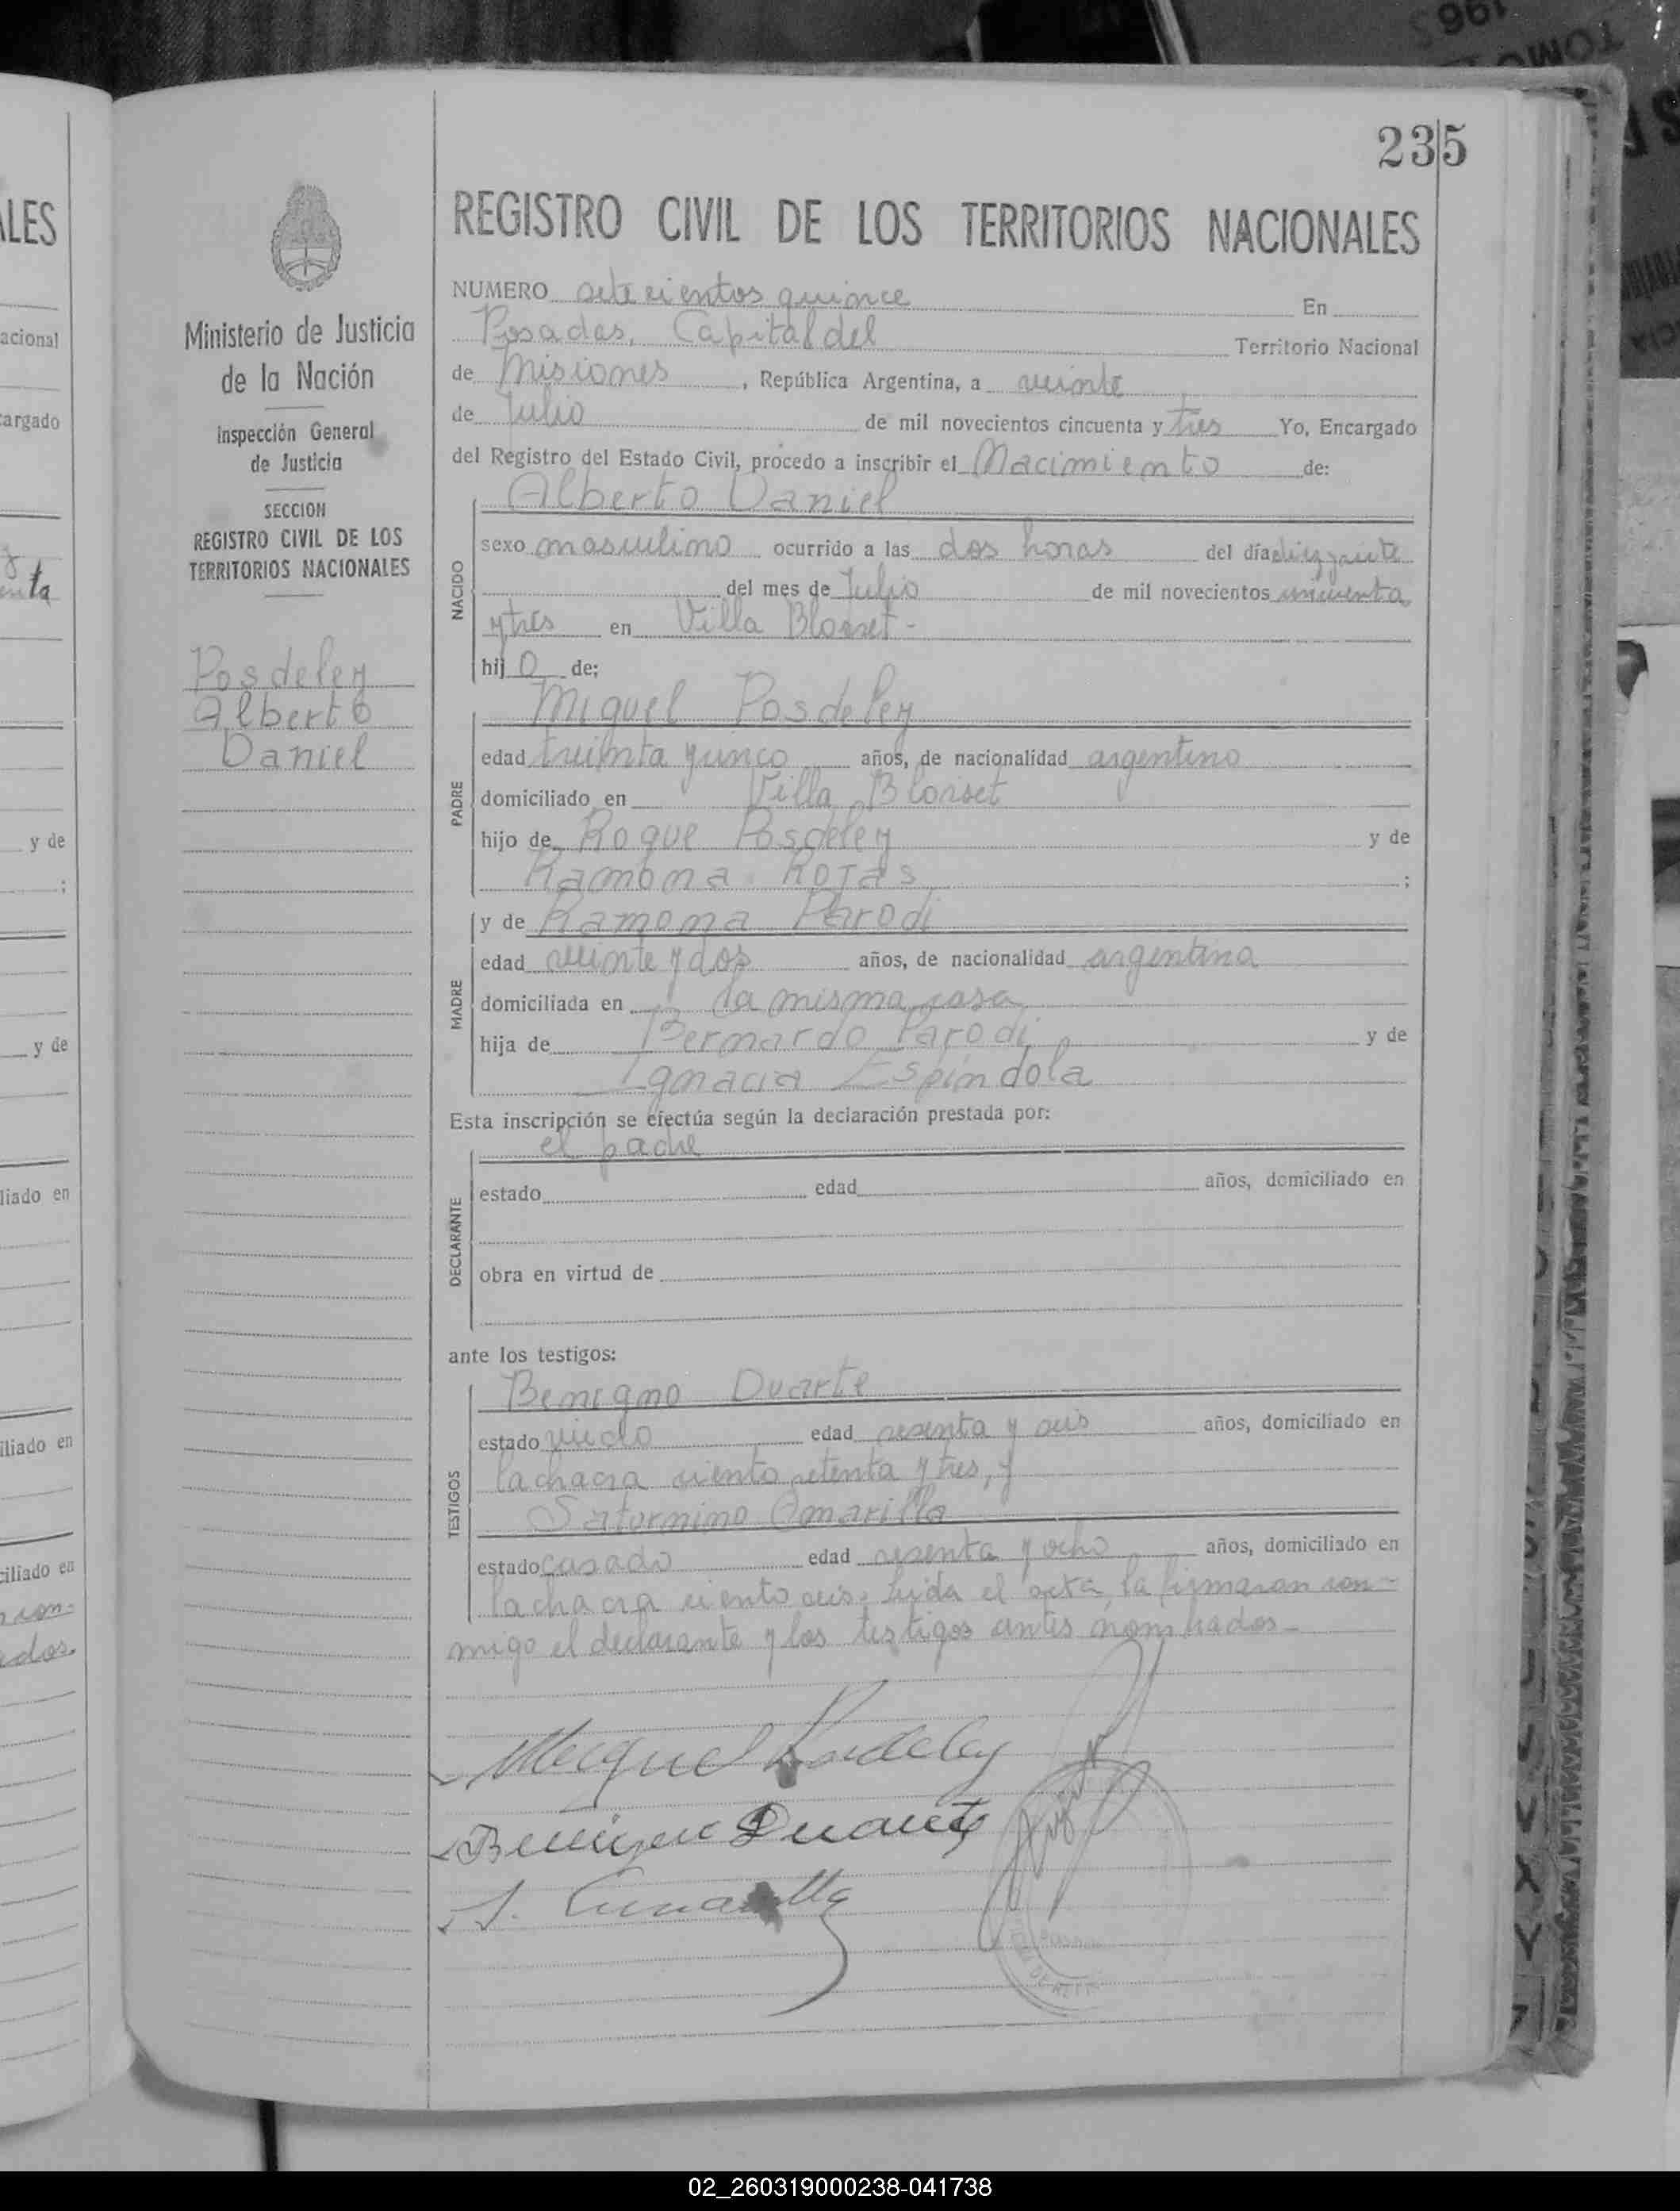 1962
TOMO
235
ALES
acional
cargado
enta
y de
;
y de
liado en
iliado en
ciliado en
con-
ados.
Ministerio de Justicia
de la Nación
Inspección General
de Justicia
SECCION
REGISTRO CIVIL DE LOS
TERRITORIOS NACIONALES
Posdeley
Alberto
Daniel
REGISTRO CIVIL DE LOS TERRITORIOS NACIONALES
NUMERO setecientos quince En
Posadas, Capital del Territorio Nacional
de Misiones, República Argentina, a veinte
de Julio de mil novecientos cincuenta y tres Yo, Encargado
del Registro del Estado Civil, procedo a inscribir el Nacimiento de:
Alberto Daniel
NACIDO
sexo masculino ocurrido a las dos horas del día
del mes de Julio de mil novecientos cincuenta
y tres en Villa Blosset-
hijo de;
Miguel Posdeley
PADRE
edad treinta y cinco años, de nacionalidad argentino
domiciliado en Villa Blosset
hijo de Roque Posdeley y de
Ramona Rojas ;
y de Ramona Parodi
MADRE
edad veinte y dos años, de nacionalidad argentina
domiciliada en la misma casa
hija de Bernardo Parodi y de
Ignacia Espindola
Esta inscripción se efectúa según la declaración prestada por:
el padre
DECLARANTE
estado edad años, domiciliado en
obra en virtud de
ante los testigos:
Benigno Duarte
TESTIGOS
estado viudo edad sesenta y seis años, domiciliado en
la chacra ciento setenta y tres, y
Saturnino Amarilla
estado casado edad sesenta y ocho años, domiciliado en
la chacra ciento seis. Leida el acta, la firmaron con-
migo el declarante y los testigos antes nombrados-
Miguel Posdeley
Benigno Duarte
S. Amarilla
02_260319000238-041738